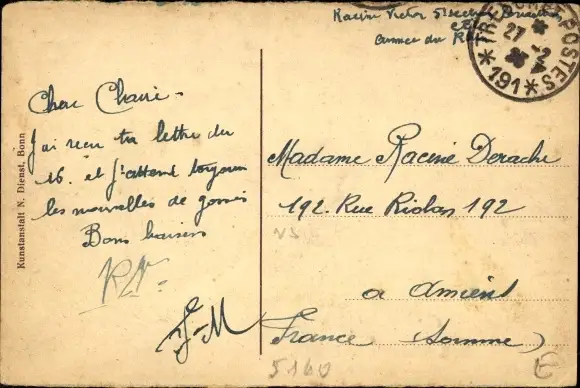 Racine Victor 5e section
Armée du Rhin
TRESOR ET POSTES
27
2
*191*
Cher Chérie -
J'ai recu ta lettre du
16. et J'attend toujours
les nouvelles de
Bons baisers
RV
J-M
Kunstanstalt N. Dienst, Bonn
Madame Racine Derache
192. Rue Riolan 192
VS
a Amiens
France (Somme)
5160
E